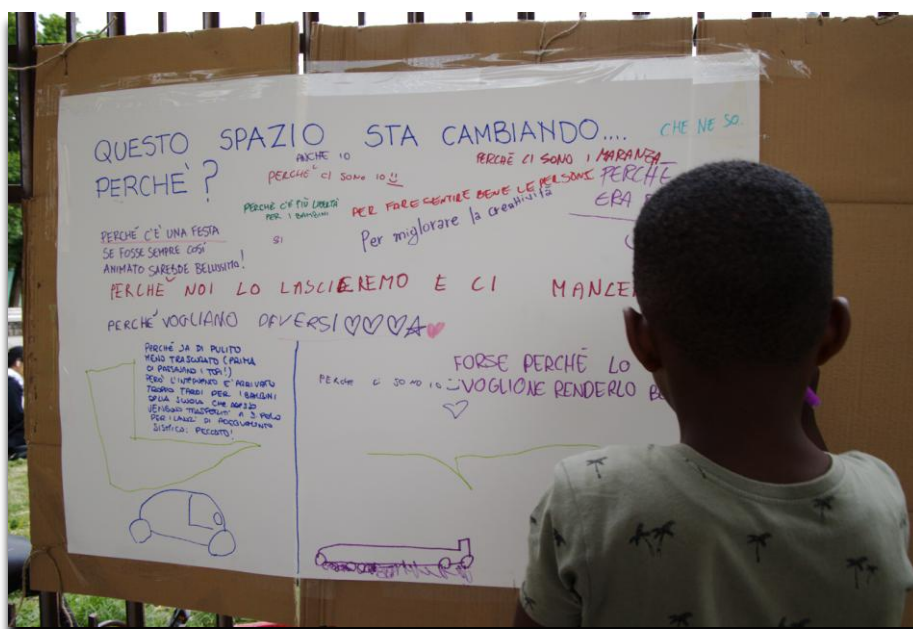 QUESTO SPAZIO STA CAMBIANDO....
CHE NE SO.
PERCHE' ?
ANCHE IO
PERCHE' CI SONO IO
PERCHÈ CI SONO I MARANZA
PERCHÈ C'È PIÙ LIBERTÀ
PER I BAMBINI
PER FARE SENTIRE BENE LE PERSONE
PERCHE
ERA
Per migliorare la creatività
PERCHÉ C'È UNA FESTA
SE FOSSE SEMPRE COSÌ
ANIMATO SAREBBE BELLISSIMO!
SI
PERCHE NOI LO LASCIEREMO E CI
PERCHE' VOGLIAMO DIVERSI
PERCHÉ SA DI PULITO
MENO TRASCURATO (PRIMA
CI PASSAVANO I TOPI!)
PERÒ L'INTERVENTO È ARRIVATO
TROPPO TARDI PER I BAMBINI
DELLA SCUOLA CHE ADESSO
VENGONO TRASFERITI A S. PAOLO
PER I LAVORI DI ADEGUAMENTO
SISMICO: PECCATO!
PERCHE E SONO IO
FORSE PERCHÈ LO
VOGLIONE RENDERLO